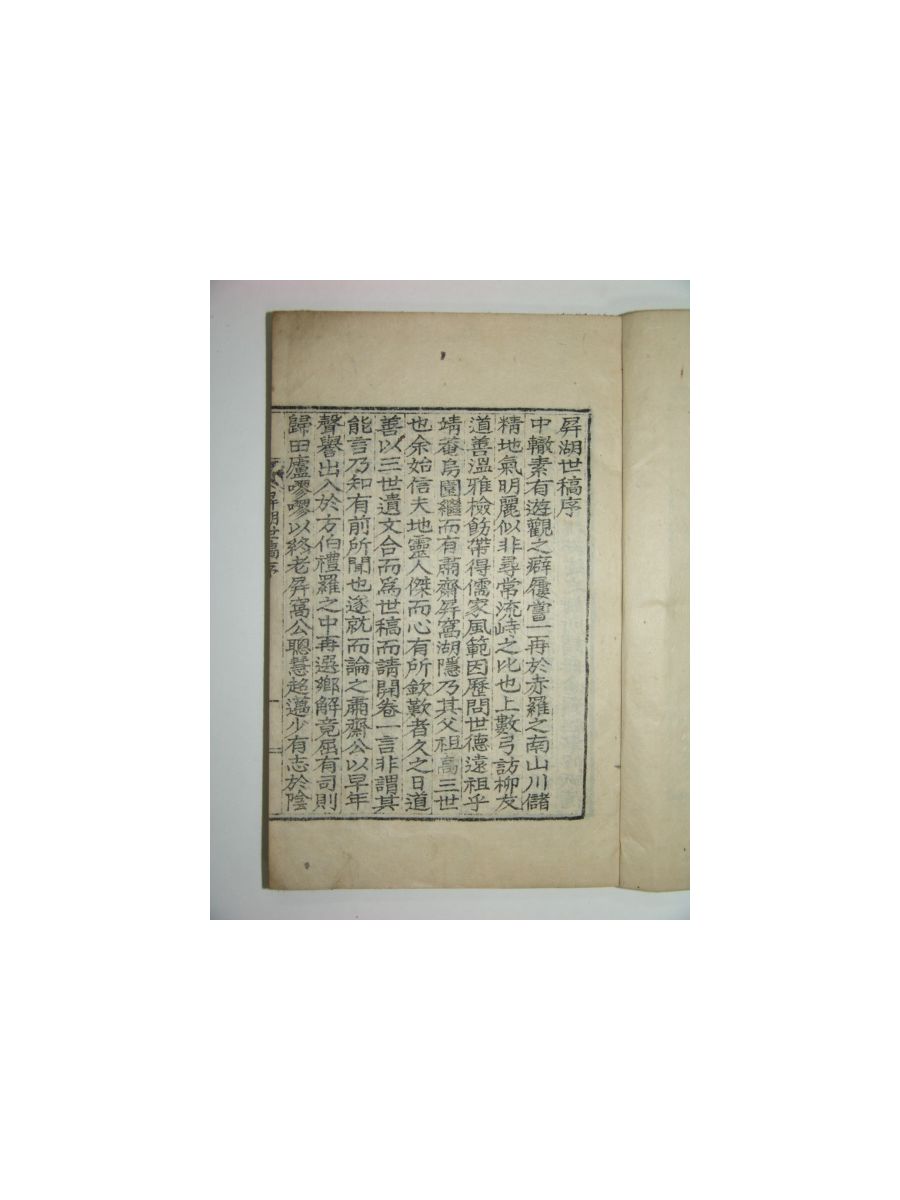 屛湖世稿序
中轍素有遊觀之癖屢嘗一再於赤羅之南山川儲
精地氣明麗似非尋常流峙之比也上數弓訪柳友
道善溫雅檢飭帶得儒家風範因歷問世德遠祖乎
靖菴烏園繼而有肅齋屛窩湖隱乃其父祖高三世
也余始信夫地靈人傑而心有所欽歎者久之日道
善以三世遺文合而爲世稿而請開卷一言非謂其
能言乃知有前所聞也遂就而論之肅齋公以早年
聲譽出入於方伯禮羅之中再選鄕解竟屈有司則
歸田廬嘐嘐以終老屛窩公聰慧超邁少有志於陰
屛湖世稿序
一